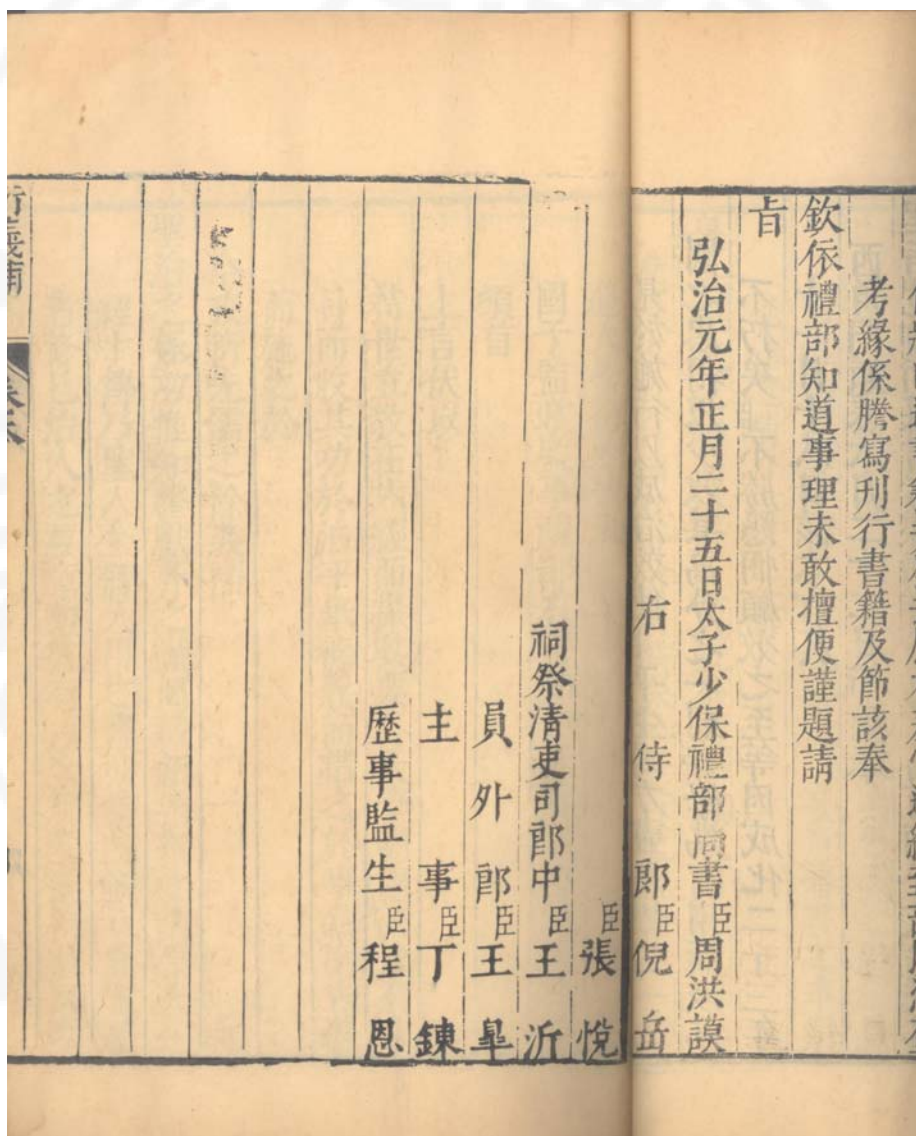 考緣係謄寫刊行書籍及節該奉
欽依禮部知道事理未敢擅便謹題請
旨
弘治元年正月二十五日太子少保禮部尚書臣周洪謨
右侍郎臣倪岳
臣張悅
祠祭清吏司郎中臣王沂
員外郎臣王皐
主事臣丁鍊
歷事監生臣程恩